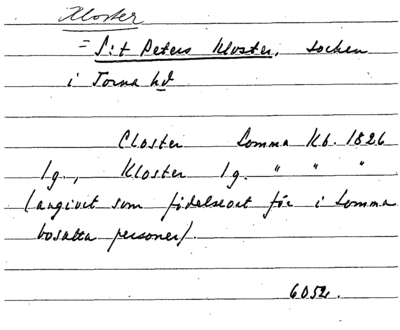 Kloster
= S:t Peters Kloster, socken
i Torna hd
Closter Lomma Kb. 1826
1g., Kloster 1g. " " "
(angivet som födelseort för i Lomma
bosatta personer).
6052.